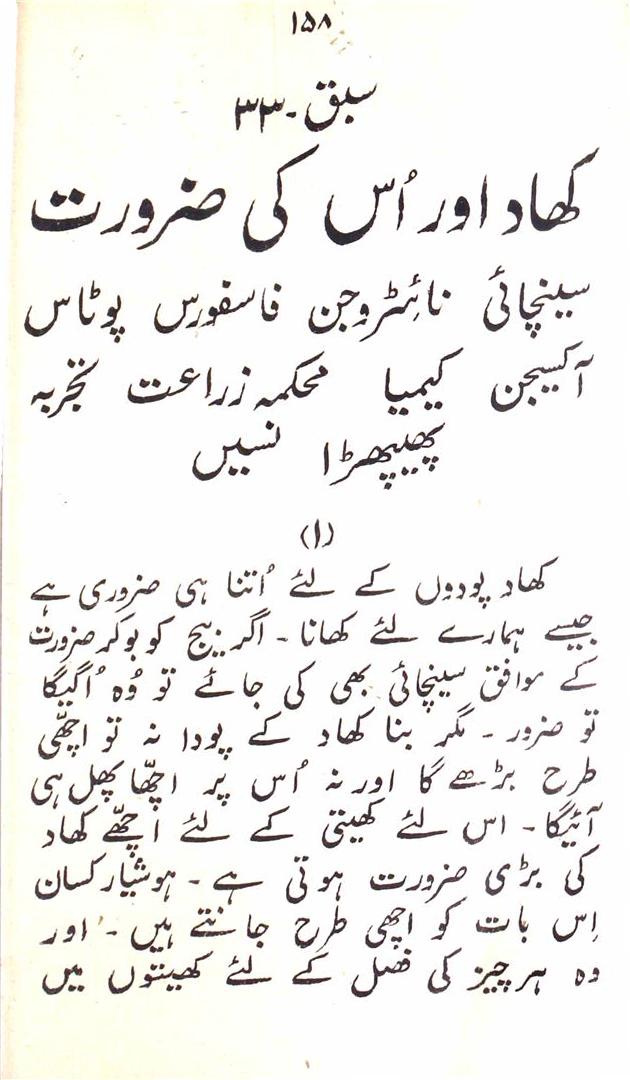 ۱۵۸
سبق - ۳۳
کھاد اور اُس کی ضرورت
سینچائی نائٹروجن فاسفورس پوٹاس
آکسیجن کیمیا محکمہ زراعت تجربہ
پھیپھڑا نسیں
(۱)
کھاد پودوں کے لئے اُتنا ہی ضروری ہے
جیسے ہمارے لئے کھانا - اگر بیج کو بوکر ضرورت
کے موافق سینچائی بھی کی جائے تو وُہ اُگیگا
تو ضرور - مگر بنا کھاد کے پودا نہ تو اچھّی
طرح بڑھے گا اور نہ اُس پر اچھّا پھل ہی
آئیگا - اس لئے کھیتی کے لئے اچھّے کھاد
کی بڑی ضرورت ہوتی ہے - ہوشیار کسان
اِس بات کو اچھی طرح جانتے ہیں - اور
وہ ہر چیز کی فصل کے لئے کھیتوں میں